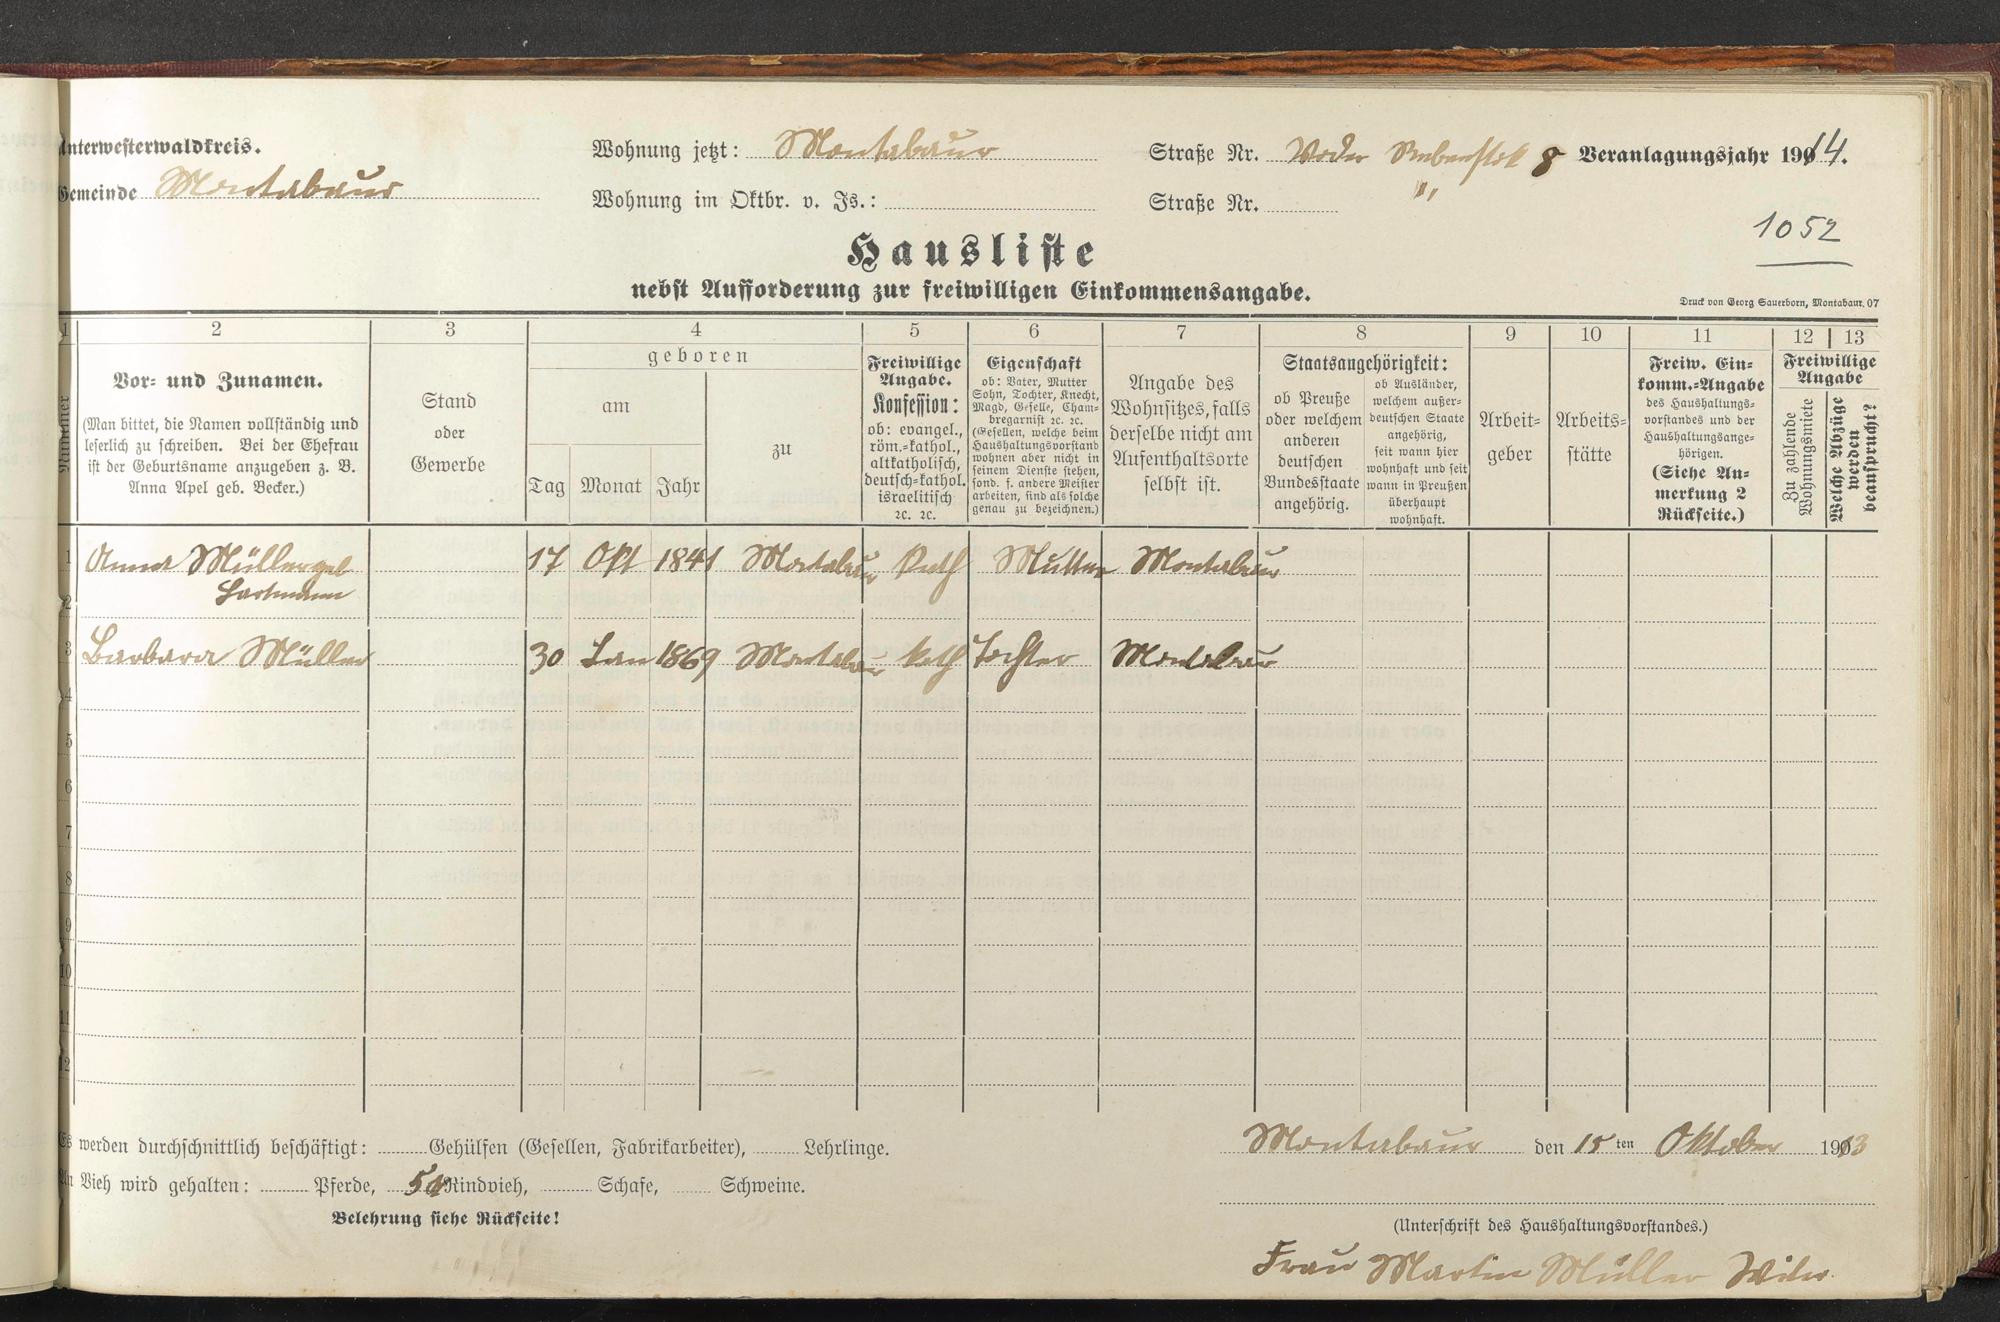 Unterwesterwaldkreis.
Wohnung jetzt: Montabaur
Straße Nr. Voder Rebenstok 8
Veranlagungsjahr 1914.
Gemeinde Montabaur
Wohnung im Oktbr. v. Js.:
Straße Nr. "
1052
Hausliste
nebst Aufforderung zur freiwilligen Einkommensangabe.
Druck von Georg Sauerborn, Montabaur. 07
1 2 3 4 5 6 7 8 9 10 11 12 13
Nummer
Vor- und Zunamen.
(Man bittet, die Namen vollständig und
leserlich zu schreiben. Bei der Ehefrau
ist der Geburtsname anzugeben z. B.
Anna Apel geb. Becker.)
Stand
oder
Gewerbe
geboren
am
Tag Monat Jahr
zu
Freiwillige
Angabe.
Konfession:
ob: evangel.,
röm.-kathol.,
altkatholisch,
deutsch-kathol.
israelitisch
ꝛc. ꝛc.
Eigenschaft
ob: Vater, Mutter
Sohn, Tochter, Knecht,
Magd, Geselle, Cham-
bregarnist ꝛc. ꝛc.
(Gesellen, welche beim
Haushaltungsvorstand
wohnen aber nicht in
seinem Dienste stehen,
sond. f. andere Meister
arbeiten, sind als solche
genau zu bezeichnen.)
Angabe des
Wohnsitzes, falls
derselbe nicht am
Aufenthaltsorte
selbst ist.
Staatsangehörigkeit:
ob Preuße
oder welchem
anderen
deutschen
Bundesstaate
angehörig.
ob Ausländer,
welchem außer-
deutschen Staate
angehörig,
seit wann hier
wohnhaft und seit
wann in Preußen
überhaupt
wohnhaft.
Arbeit-
geber
Arbeits-
stätte
Freiw. Ein-
komm.-Angabe
des Haushaltungs-
vorstandes und der
Haushaltungsange-
hörigen.
(Siehe An-
merkung 2
Rückseite.)
Freiwillige
Angabe
Zu zahlende
Wohnungsmiete
Welche Abzüge
werden
beansprucht?
1 Anna Müller geb 17 Okt 1841 Montabaur Kath Mutter Montabaur
2 Hartmann
3 Barbara Müller 30 Jan 1869 Montabaur Kath Tochter Montabaur
4
5
6
7
8
9
10
11
12
Es werden durchschnittlich beschäftigt: Gehülfen (Gesellen, Fabrikarbeiter), Lehrlinge.
Montabaur den 15ten Oktober 1913
An Vieh wird gehalten: Pferde, Rindvieh, Schafe, Schweine.
Belehrung siehe Rückseite!
(Unterschrift des Haushaltungsvorstandes.)
Frau Martin Müller Witw.